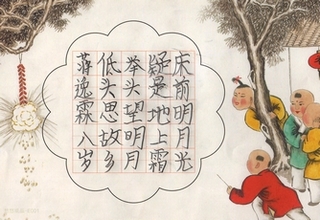 床前明月光
疑是地上霜
举头望明月
低头思故乡
蒋逸霖八岁